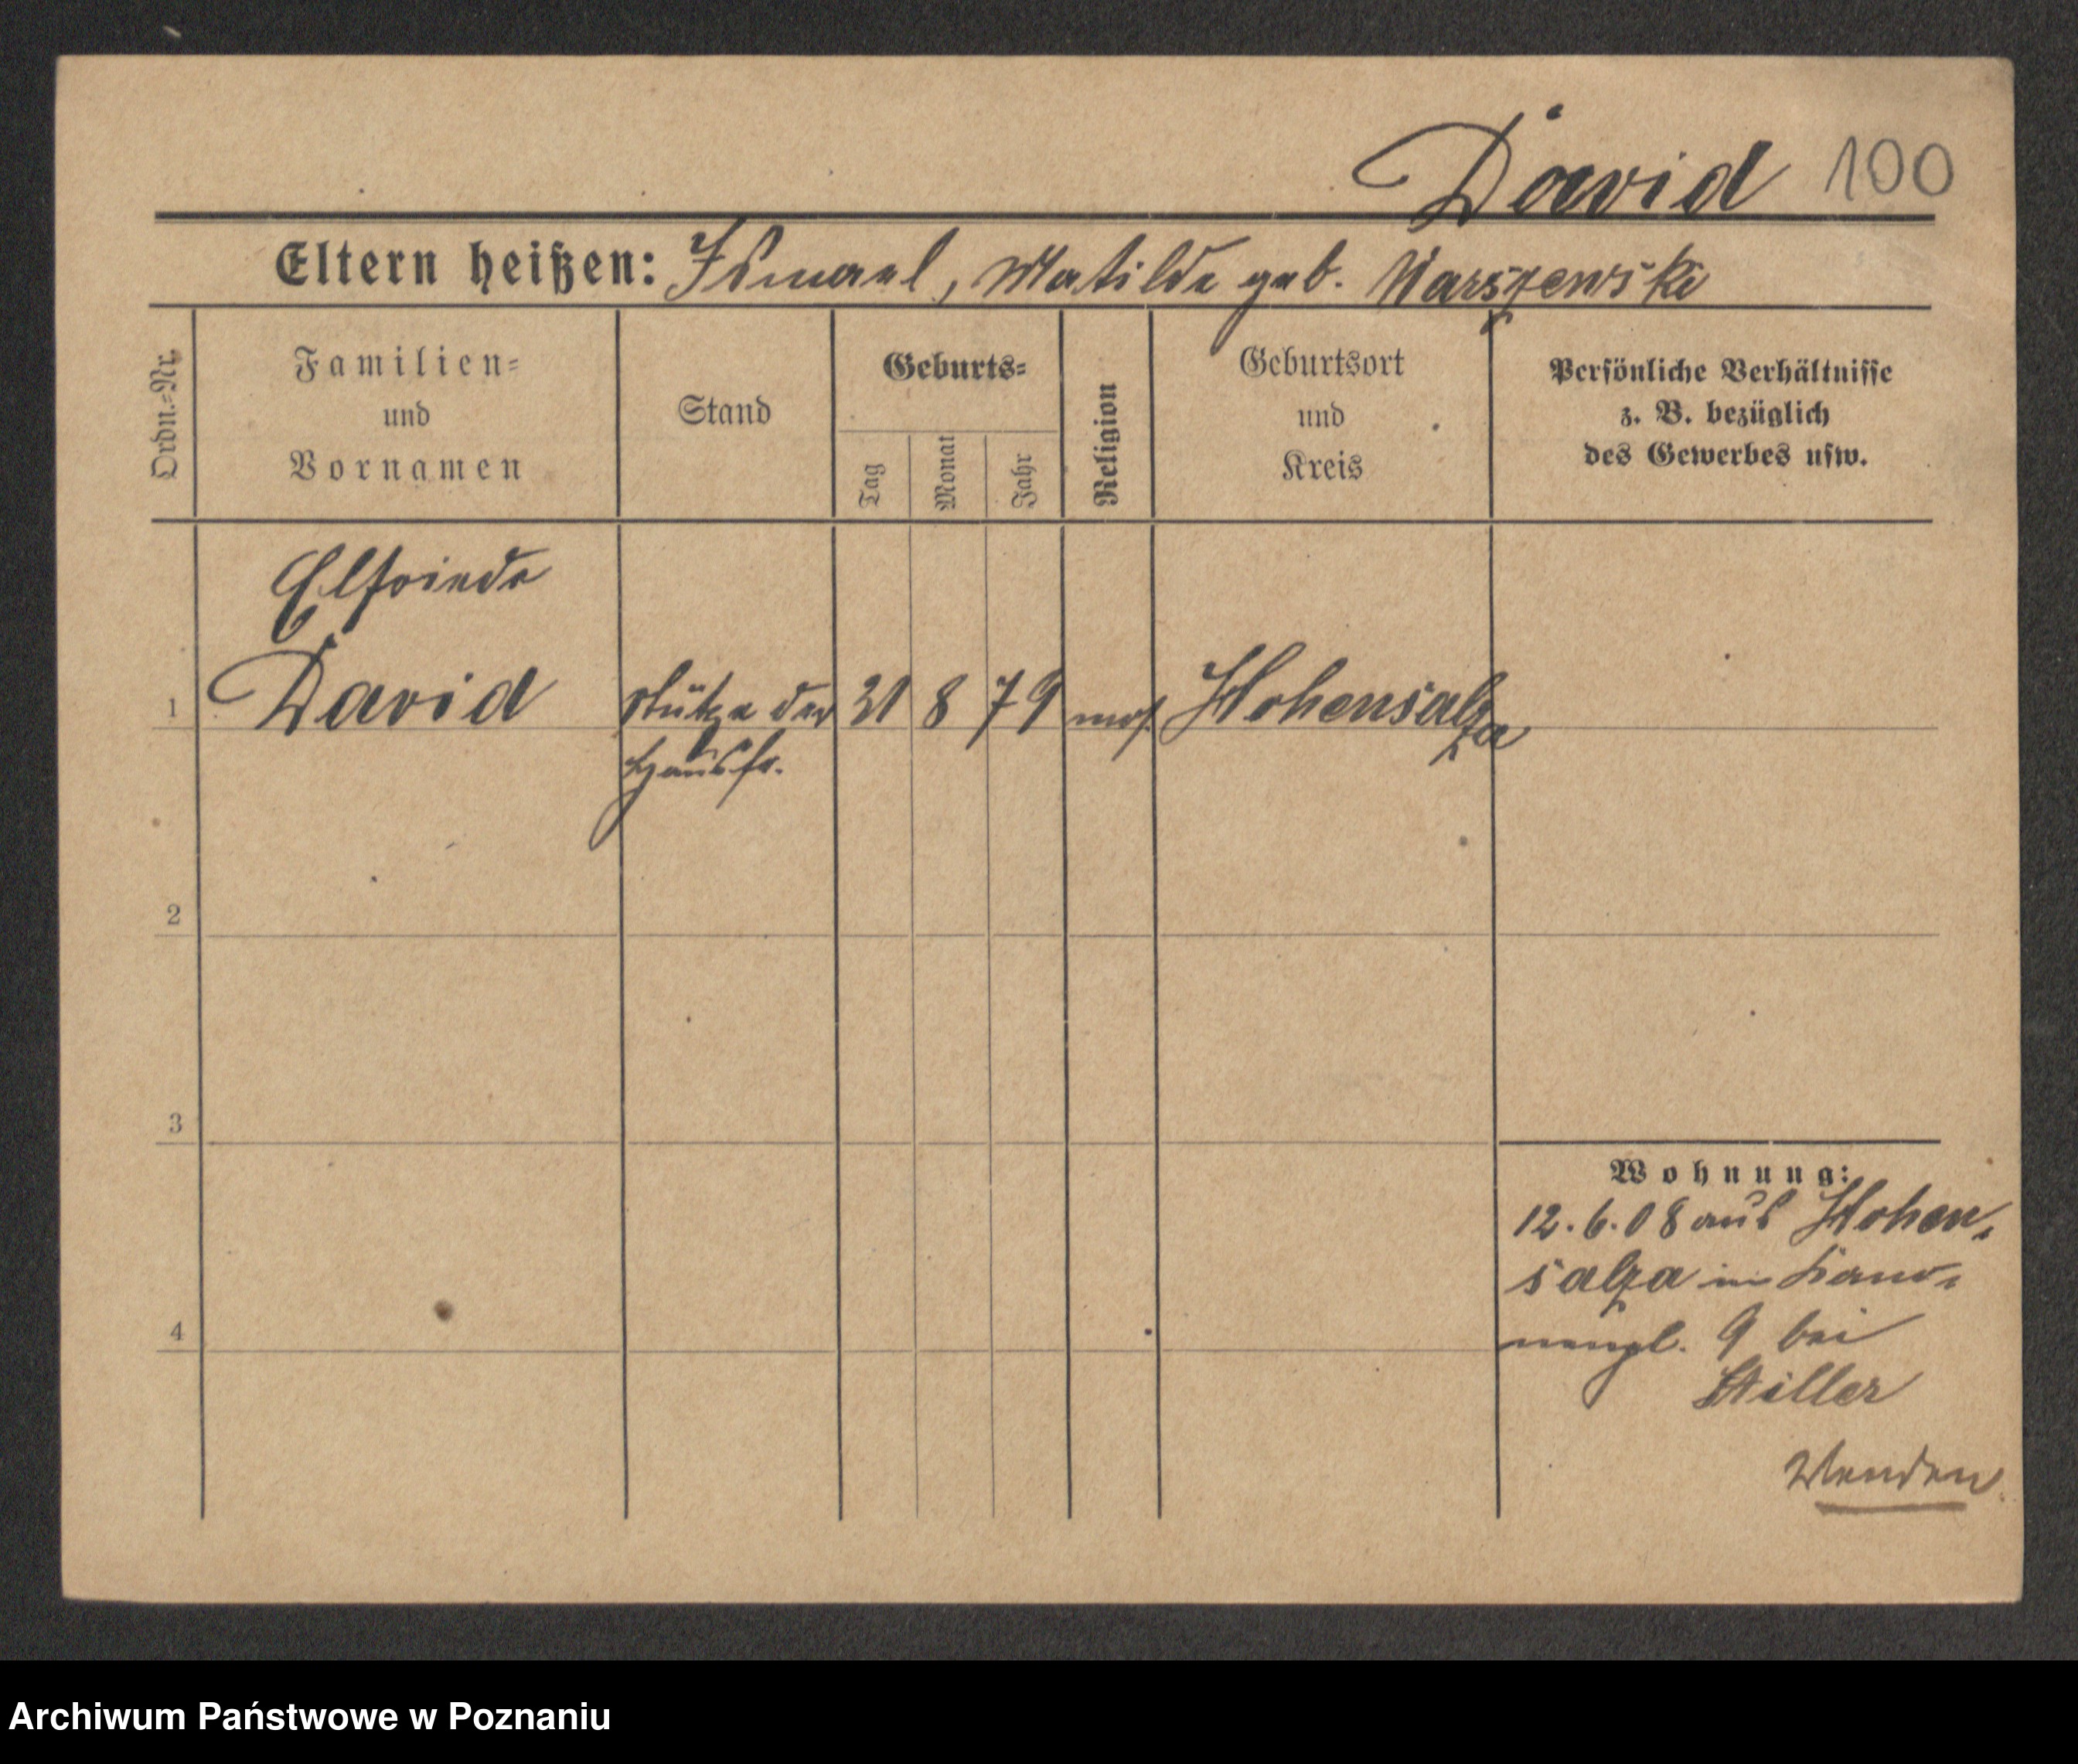 David 100
Eltern heißen: Ismael, Matilde geb. Warszewski
Ordn.-Nr.
Familien-
und
Vornamen
Stand
Geburts-
Tag
Monat
Jahr
Religion
Geburtsort
und
Kreis
Persönliche Verhältnisse
z. B. bezüglich
des Gewerbes usw.
Elfriede
1 David Stütze der 21 8 79 mos. Hohensalza
Hausfr.
2
3
4
Wohnung:
12.6.08 aus Hohen-
salza in
9 bei
Hiller
Wenden
Archiwum Państwowe w Poznaniu